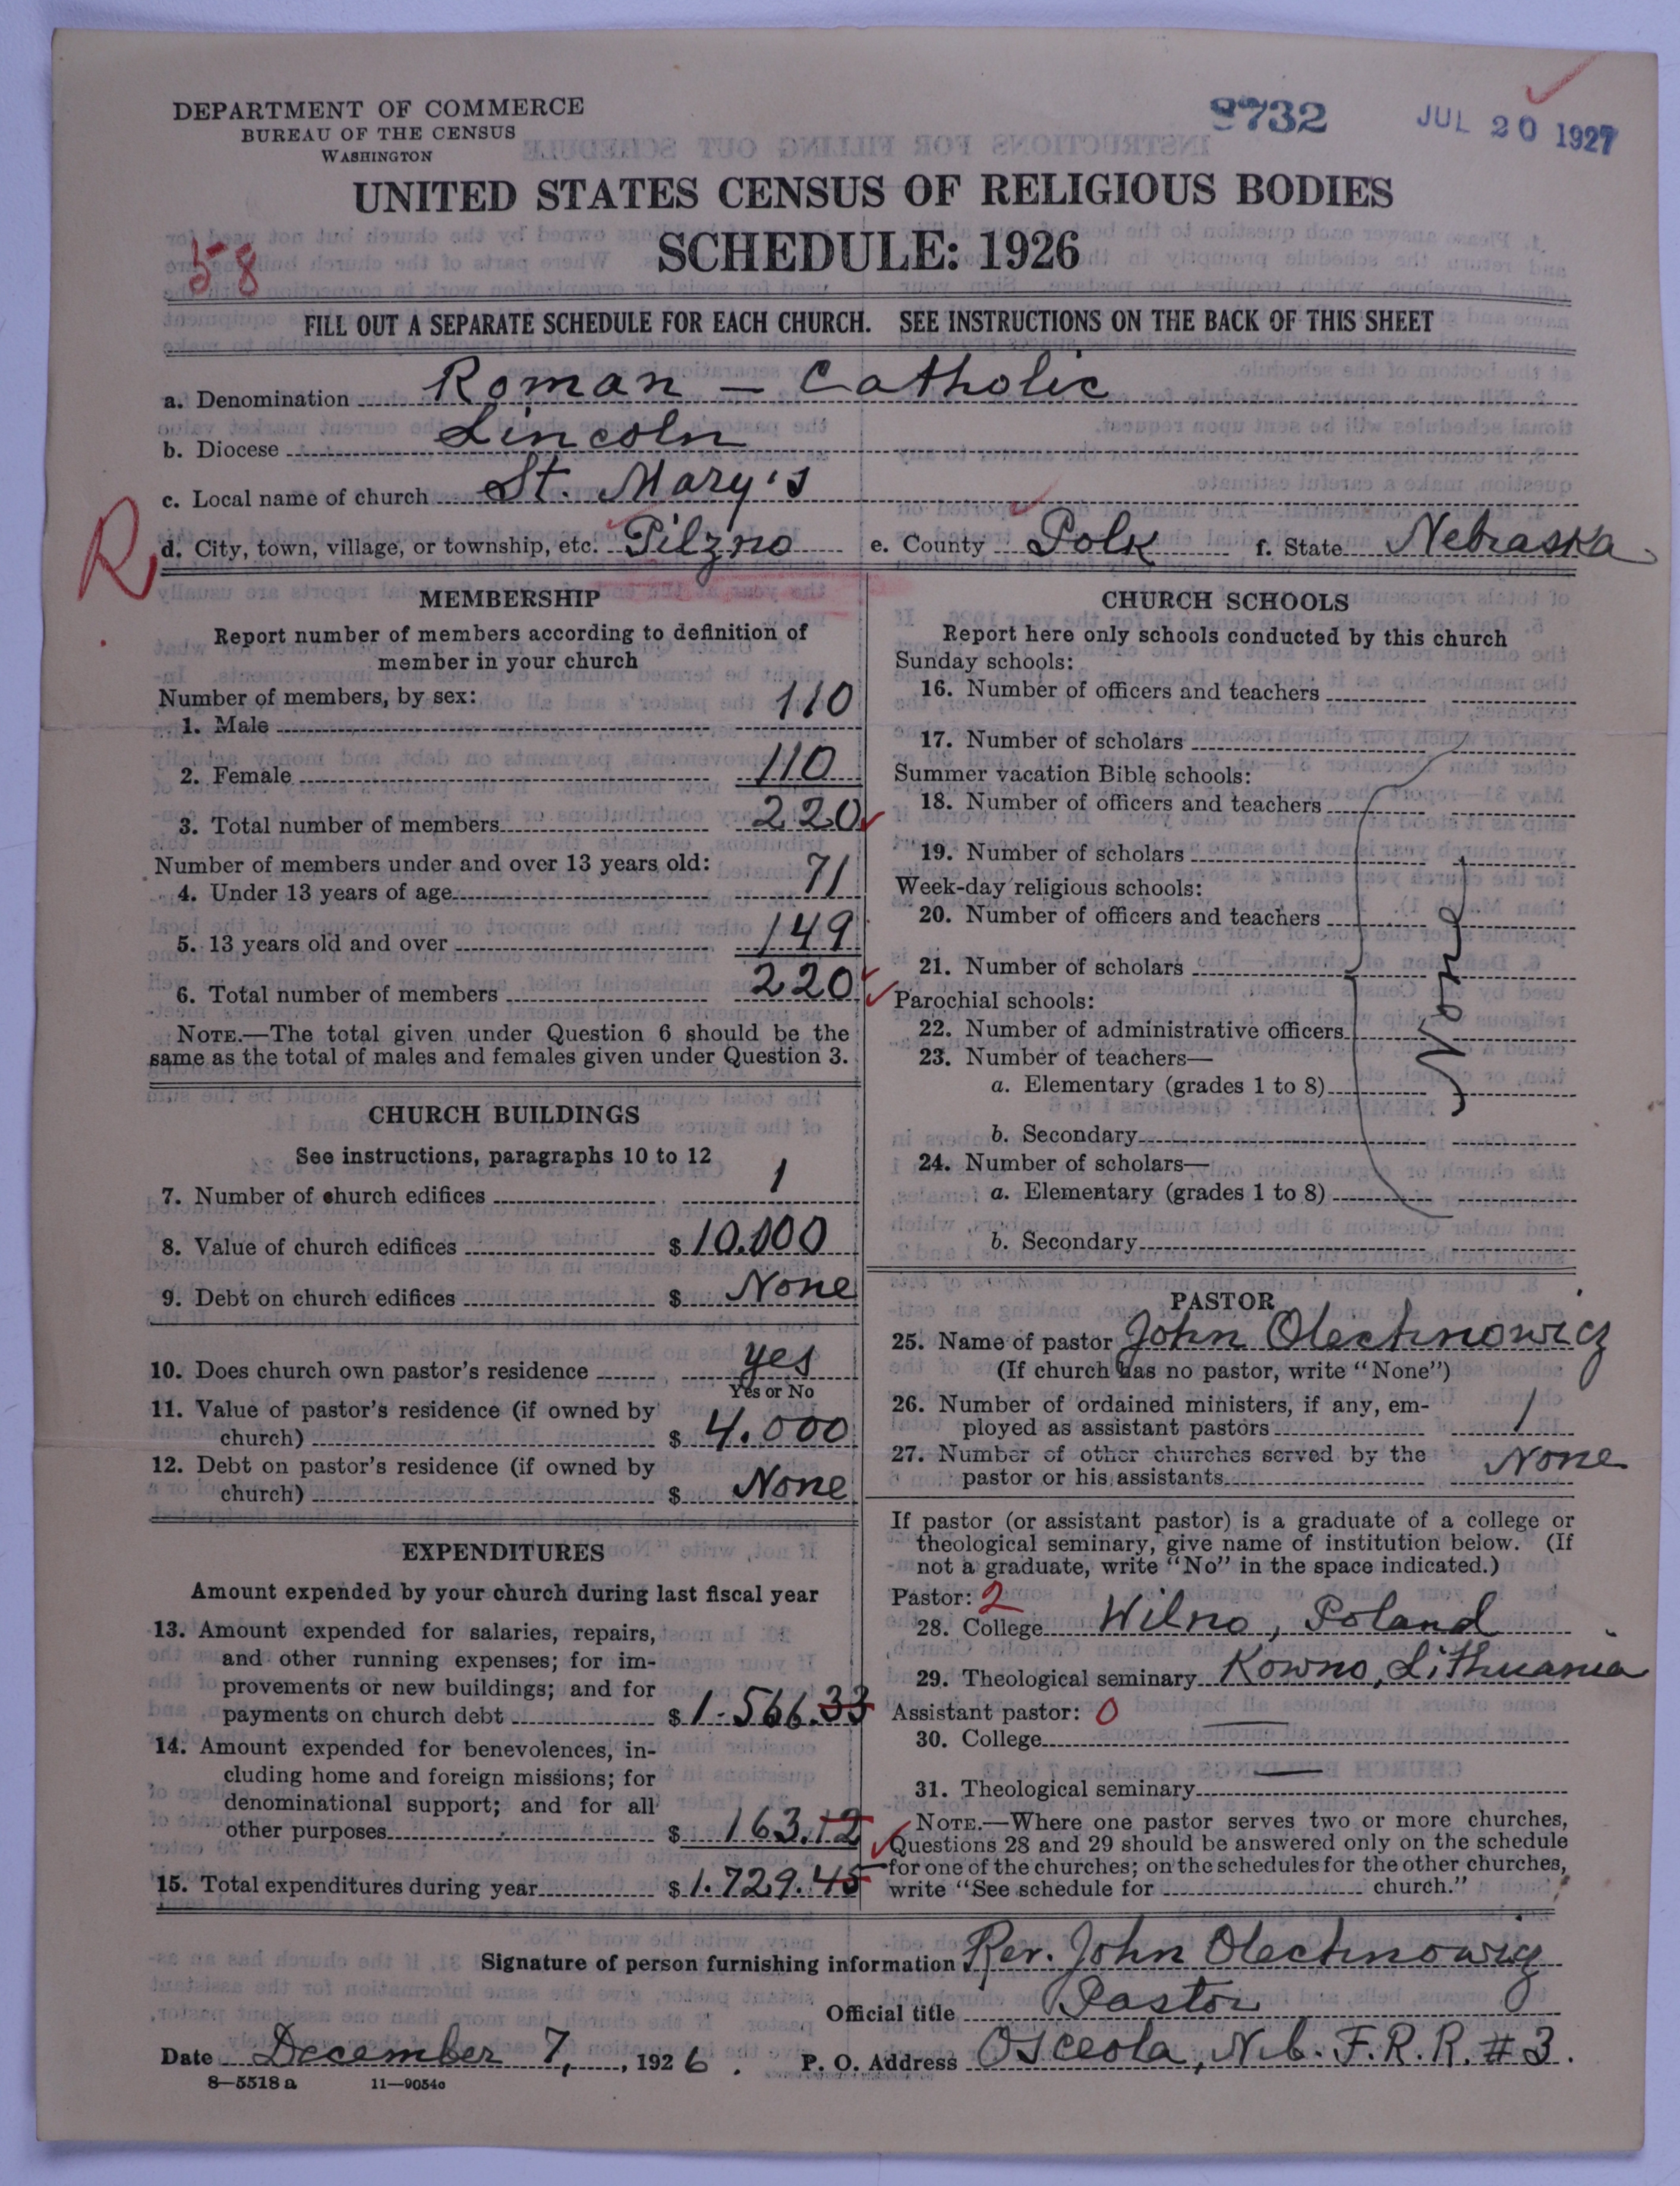 DEPARTMENT OF COMMERCE
BUREAU OF THE CENSUS
WASHINGTON
9732
JUL 20 1927
UNITED STATES CENSUS OF RELIGIOUS BODIES
SCHEDULE: 1926
58
FILL OUT A SEPARATE SCHEDULE FOR EACH CHURCH. SEE INSTRUCTIONS ON THE BACK OF THIS SHEET
a. Denomination Roman - Catholic
b. Diocese Lincoln
c. Local name of church St. Mary's
R
d. City, town, village, or township, etc. Pilzno e. County Polk f. State Nebraska
MEMBERSHIP
Report number of members according to definition of
member in your church
Number of members, by sex:
1. Male 110
2. Female 110
3. Total number of members 220
Number of members under and over 13 years old:
4. Under 13 years of age 71
5. 13 years old and over 149
6. Total number of members 220
NOTE.—The total given under Question 6 should be the
same as the total of males and females given under Question 3.
CHURCH BUILDINGS
See instructions, paragraphs 10 to 12
7. Number of church edifices 1
8. Value of church edifices $ 10.000
9. Debt on church edifices $ None
10. Does church own pastor's residence yes
Yes or No
11. Value of pastor's residence (if owned by
church) $ 4.000
12. Debt on pastor's residence (if owned by
church) $ None
EXPENDITURES
Amount expended by your church during last fiscal year
13. Amount expended for salaries, repairs,
and other running expenses; for im-
provements or new buildings; and for
payments on church debt $ 1.566.33
14. Amount expended for benevolences, in-
cluding home and foreign missions; for
denominational support; and for all
other purposes $ 163.12
15. Total expenditures during year $ 1.729.45
CHURCH SCHOOLS
Report here only schools conducted by this church
Sunday schools:
16. Number of officers and teachers
17. Number of scholars
Summer vacation Bible schools:
18. Number of officers and teachers
19. Number of scholars
Week-day religious schools:
20. Number of officers and teachers
21. Number of scholars
None
Parochial schools:
22. Number of administrative officers
23. Number of teachers—
a. Elementary (grades 1 to 8)
b. Secondary
24. Number of scholars—
a. Elementary (grades 1 to 8)
b. Secondary
PASTOR
25. Name of pastor John Olechnowicz
(If church has no pastor, write "None")
26. Number of ordained ministers, if any, em-
ployed as assistant pastors 1
27. Number of other churches served by the
pastor or his assistants None
If pastor (or assistant pastor) is a graduate of a college or
theological seminary, give name of institution below. (If
not a graduate, write "No" in the space indicated.)
Pastor: 2
28. College Wilno, Poland
29. Theological seminary Kowno, Lithuania
Assistant pastor: 0
30. College
31. Theological seminary
NOTE.—Where one pastor serves two or more churches,
Questions 28 and 29 should be answered only on the schedule
for one of the churches; on the schedules for the other churches,
write "See schedule for church."
Signature of person furnishing information Rev. John Olechnowicz
Official title Pastor
Date December 7, 1926. P. O. Address Osceola, Neb. F.R.R. #3.
8—5518 a 11—9054c